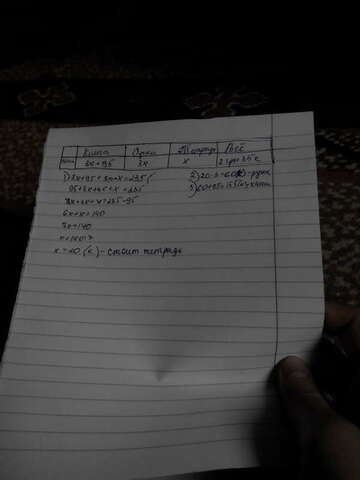 Книга Ручка Тетрадь Всё
Цена 3x+95 3x x 2 грн 35 к
1) 3x+95+3x+x=235 (
95+3x+3x+x=235
3x+3x+x=235-95
6x+x=140
7x=140
x=140:7
x=20 (к) - стоит тетрадь
2) 20·3=60(к)-ручка
3) 60+95=155(к)-книга